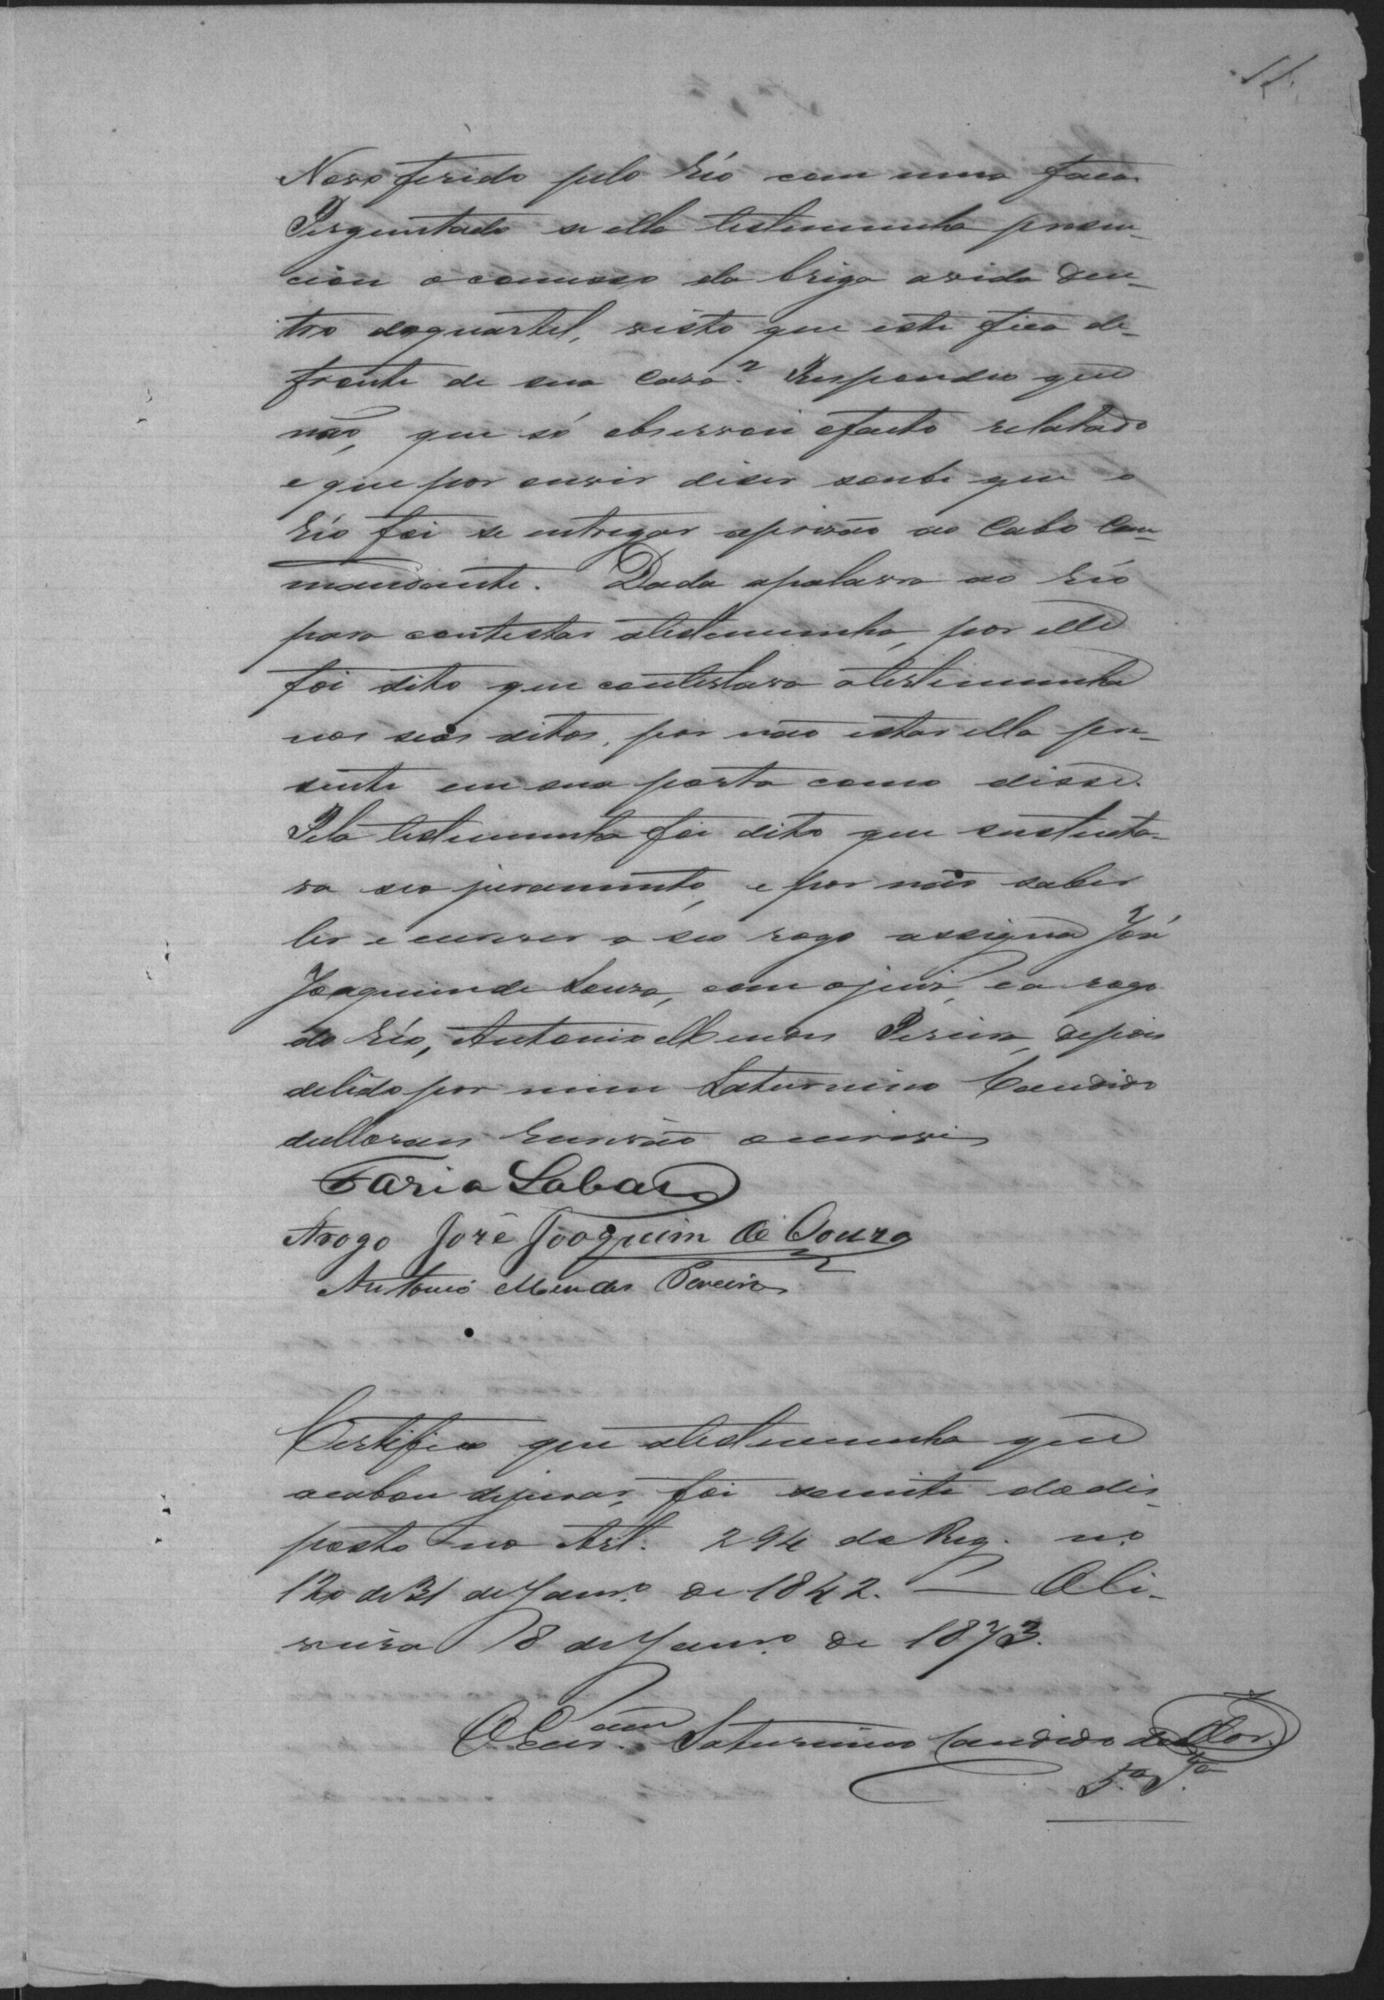 11.
Naso ferido pelo Réo com uma faca
Perguntado se ella testemunha presen-
ciou o comesso da briga avida den-
tro do quartel, visto que este fica de-
fronte de sua casa? Respondeu que
não, que só observou o facto relatado
e que por ouvir diser soube que o
Réo foi se entregar a prisão ao Cabo Com-
mandante. Dada a palavra ao Réo
para contestar a testemunha, por elle
foi dito que contestava a testemunha
nos seos ditos, por não estar ella pre-
sente em sua porta como disse.
Pela testemunha foi dito que sustenta-
va seo juramento, e por não saber
ler e escrever a seo rogo assigna José
Joaquim de Souza, com o juiz, e a rogo
do Réo, Antonio Mendes Pereira, depois
de lido por mim Saturnino Candido
de Moraes Escrivão o escrevi
Faria Lobato
Arogo José Joaquim de Souza
Antonio Mendes Pereira
Certifico que a testemunha que
acabou de jurar, foi sciente do dis-
posto no Art. 294 do Reg. n.o
120 de 31 de Janr.o de 1842. Oli-
veira 18 de Janr.o de 1873.
O Escr.am Saturnino Candido de Mor.
5.a T.a